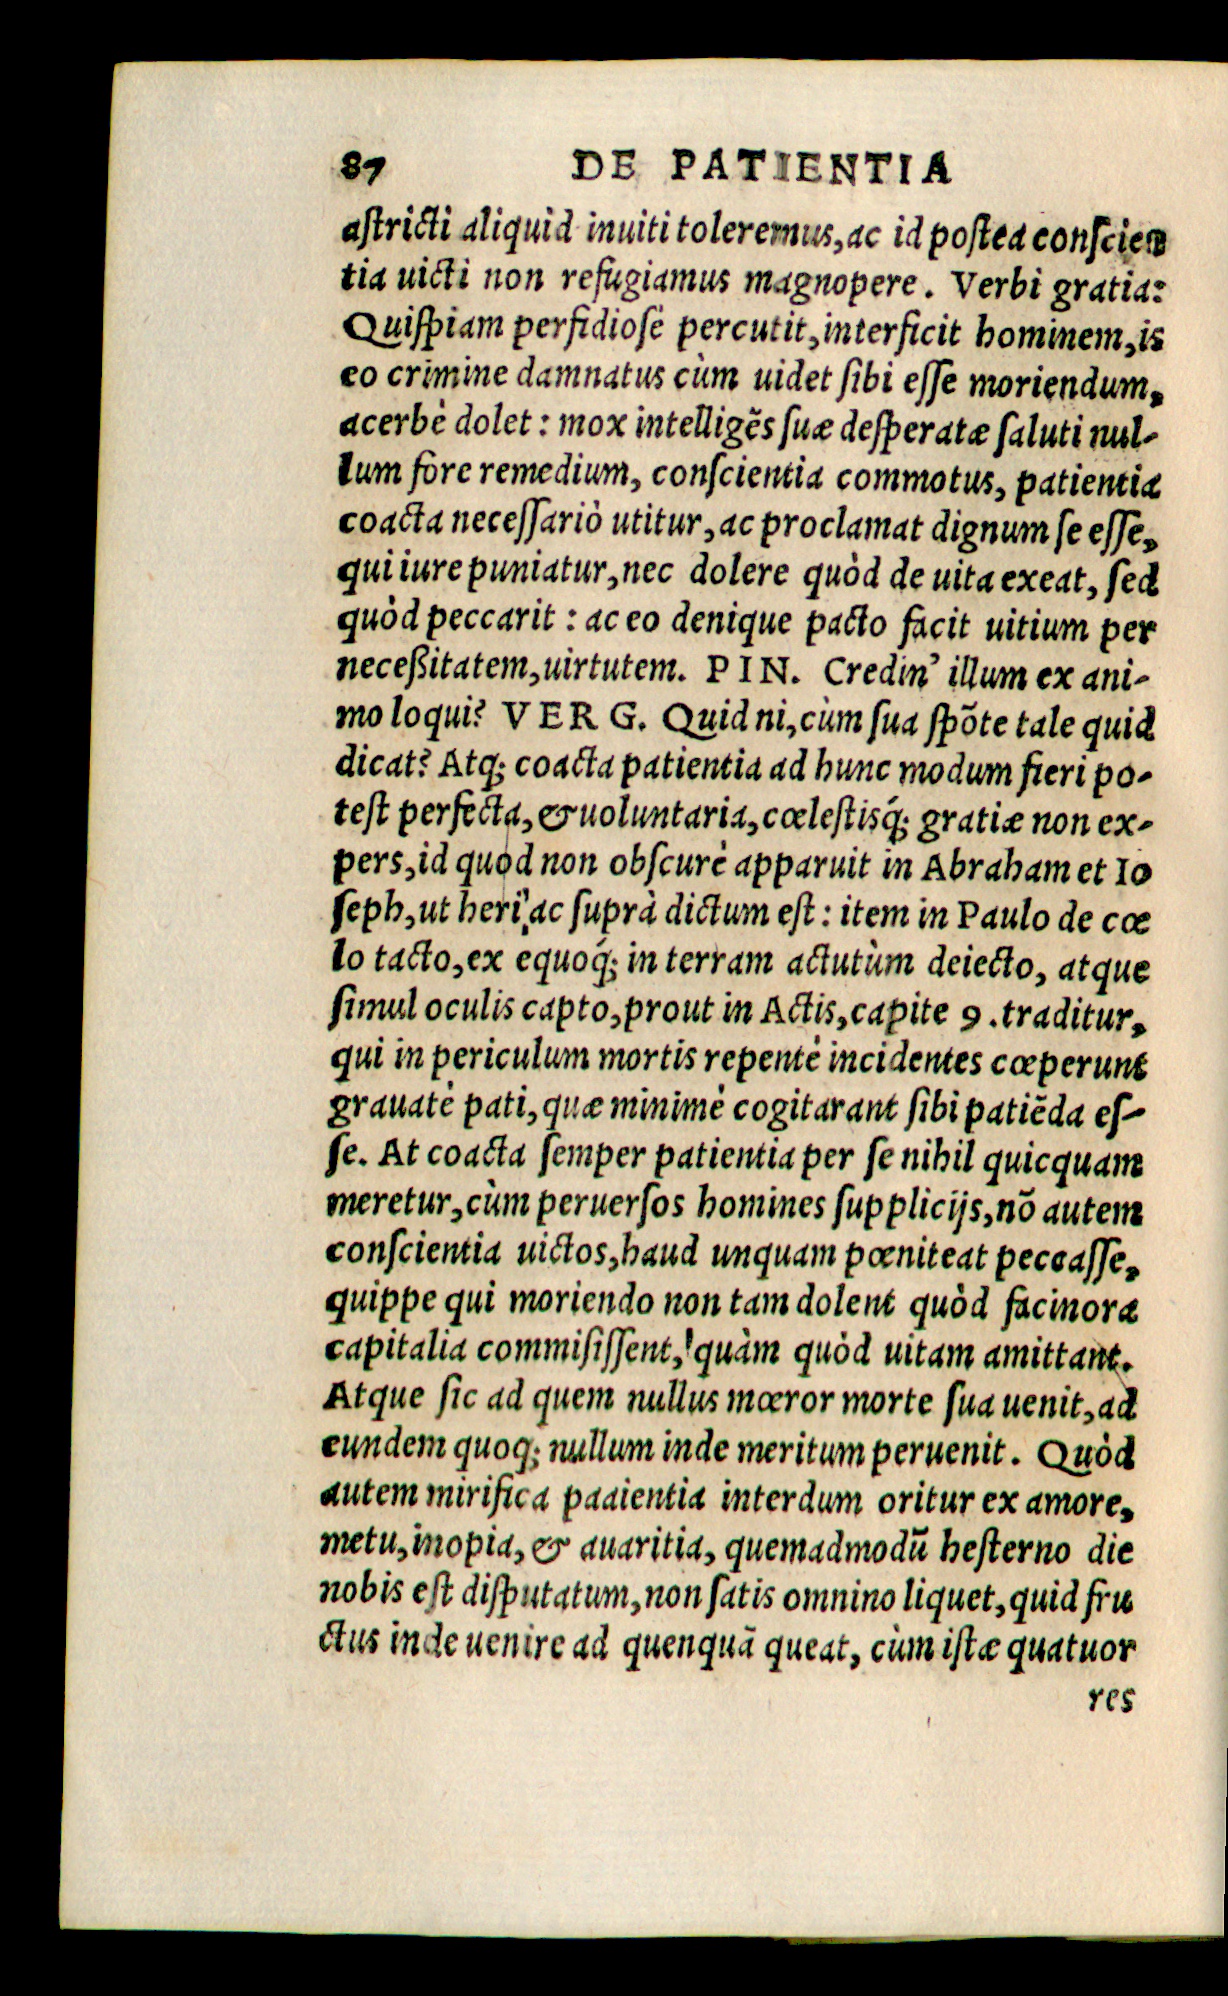 87 DE PATIENTIA
aſtricti aliquid inuiti toleremus, ac id poſtea conſcien
tia uicti non refugiamus magnopere. Verbi gratia:
Quiſpiam perfidioſè percutit, interficit hominem, is
eo crimine damnatus cùm uidet ſibi eſſe moriendum,
acerbè dolet: mox intelligẽs ſuæ deſperatæ ſaluti nul-
lum fore remedium, conſcientia commotus, patientia
coacta neceſſariò utitur, ac proclamat dignum ſe eſſe,
qui iure puniatur, nec dolere quòd de uita exeat, ſed
quòd peccarit: ac eo denique pacto facit uitium per
neceßitatem, uirtutem. PIN. Credin' illum ex ani-
mo loqui? VERG. Quid ni, cùm ſua ſpõte tale quid
dicat? Atq; coacta patientia ad hunc modum fieri po-
teſt perfecta, & uoluntaria, cœleſtisq́; gratiæ non ex-
pers, id quod non obſcurè apparuit in Abraham et Io
ſeph, ut heri, ac ſuprà dictum eſt: item in Paulo de cœ
lo tacto, ex equoq́; in terram actutùm deiecto, atque
ſimul oculis capto, prout in Actis, capite 9. traditur,
qui in periculum mortis repentè incidentes cœperunt
grauatè pati, quæ minimè cogitarant ſibi patiẽda eſ-
ſe. At coacta ſemper patientia per ſe nihil quicquam
meretur, cùm peruerſos homines ſupplicijs, nõ autem
conſcientia uictos, haud unquam pœniteat peccaſſe,
quippe qui moriendo non tam dolent quòd facinora
capitalia commiſiſſent, quàm quòd uitam amittant.
Atque ſic ad quem nullus mœror morte ſua uenit, ad
eundem quoq; nullum inde meritum peruenit. Quòd
autem mirifica paaientia interdum oritur ex amore,
metu, inopia, & auaritia, quemadmodũ heſterno die
nobis eſt diſputatum, non ſatis omnino liquet, quid fru
ctus inde uenire ad quenquã queat, cùm iſtæ quatuor
res